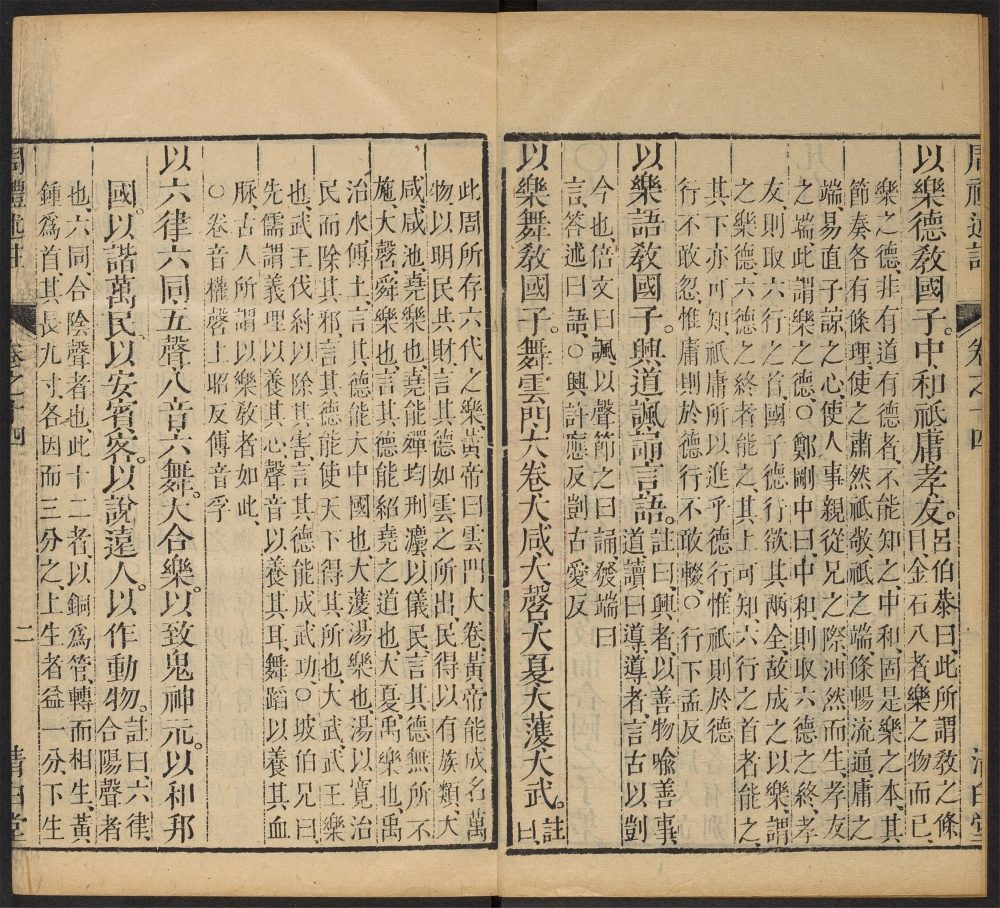 周禮述註 卷之十四 清白堂
以樂德敎國子。中和祗庸孝友。呂伯恭曰、此所謂敎之條
目、金石八者、樂之物而已、
樂之德、非有道有德者、不能知之、中和、固是樂之本、其
節奏各有條理、使之肅然祗敬、祗之端、條暢流通、庸之
端、易直子諒之心、使人事親從兄之際、油然而生、孝友
之端、此謂樂之德、○鄭剛中曰、中和、則取六德之終、孝
友則取六行之首、國子德行、欲其兩全、故成之以樂、謂
之樂德、六德之終者能之、其上可知、六行之首者能之、
其下亦可知、祗庸所以進乎德行、惟祗則於德
行不敢忽、惟庸則於德行不敢輟、○行下孟反
以樂語敎國子。興道諷誦言語。註曰、興者、以善物喻善事、
道讀曰導、導者、言古以剴
今也、倍文曰諷、以聲節之曰誦、發端曰
言、答述曰語、○興許應反剴古愛反
以樂舞敎國子。舞雲門大卷大咸、大㲈、大夏、大濩、大武。註曰、
此周所存六代之樂、黃帝曰雲門大卷、黃帝能成名萬
物、以明民共財、言其德如雲之所出、民得以有族類、大
咸、咸池、堯樂也、堯能殫均刑灋以儀民、言其德無所不
施、大㲈、舜樂也、言其德能紹堯之道也、大夏、禹樂也、禹
治水傅土、言其德能大中國也、大濩、湯樂也、湯以寬治
民而除其邪、言其德能使天下得其所也、大武、武王樂
也、武王伐紂、以除其害、言其德能成武功、○坡伯兄曰、
先儒謂義理以養其心、聲音以養其耳、舞蹈以養其血
脉、古人所謂以樂敎者如此、
○卷音權㲈上昭反傅音孚
以六律六同五聲八音六舞。大合樂。以致鬼神元。以和邦
國。以諧萬民、以安賓客。以說遠人。以作動物。註曰、六律、
合陽聲者
也、六同、合陰聲者也、此十二者、以銅爲管、轉而相生、黃
鍾爲首、其長九寸、各因而三分之、上生者益一分、下生
周禮述註 卷之十四 二 清白堂